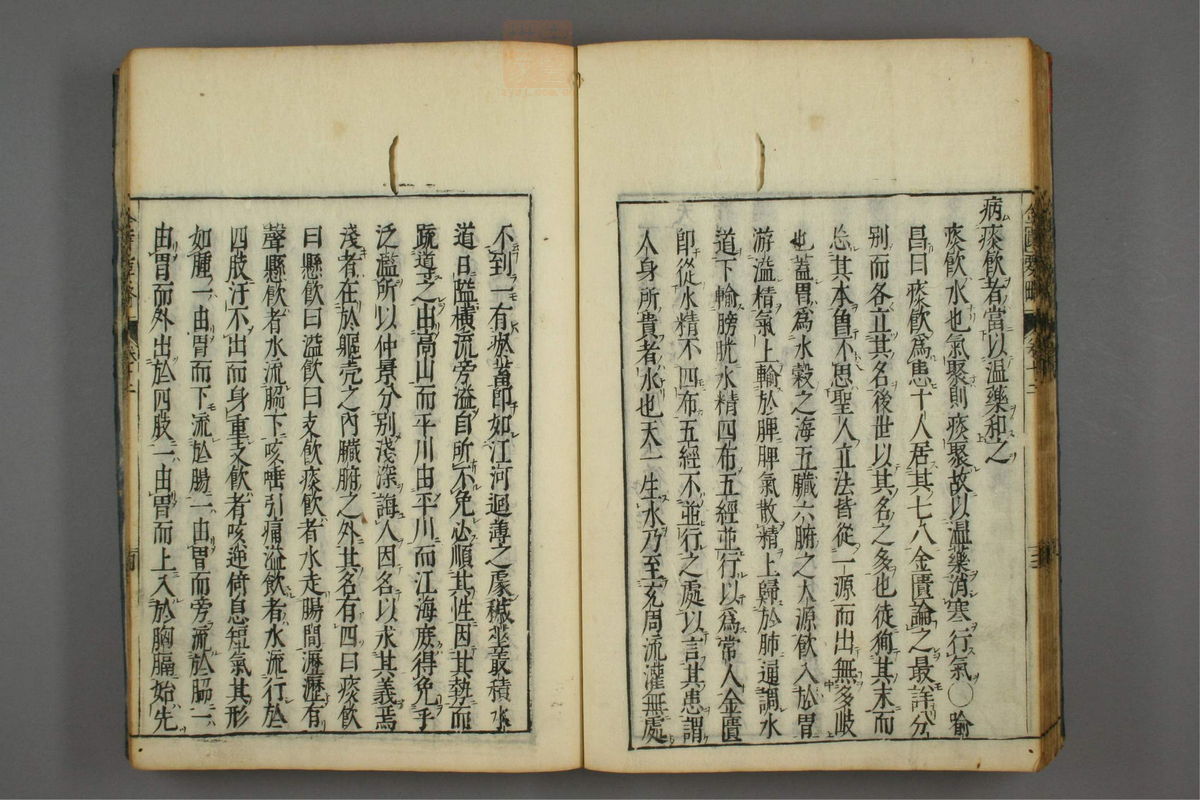 病痰飲者當以温藥和之
痰飲水也氣聚則痰聚故以温藥消寒行氣〇喻
昌曰痰飲爲患十人居其七八金匱論之最詳分
别而各立其名後世以其名之多也徒狥其末而
忘其本曾不思聖人立法皆從一源而出無多岐
也蓋胃爲水穀之海五臟六腑之大源飲入於胃
游溢精氣上輸於脾脾氣散精上歸於肺通調水
道下輸膀胱水精四布五經並行以爲常人金匱
即從水精不四布五經不並行之處以言其患謂
人身所貴者水也天一生水乃至充周流灌無處
不到一有瘀蓄即如江河迴薄之處穢莝叢積水
道日隘橫流旁溢自所不免必順其性因其勢而
疏道之由高山而平川由平川而江海庶得免乎
泛濫所以仲景分别淺深誨人因名以求其義焉
淺者在於軀壳之內臟腑之外其名有四曰痰飲
曰懸飲曰溢飲曰支飲痰飲者水走腸間瀝瀝有
聲懸飲者水流脇下咳唾引痛溢飲者水流行於
四肢汗不出而身重支飲者咳逆倚息短氣其形
如腫一由胃而下流於腸一由胃而旁流於脇一
由胃而外出於四肢一由胃而上入於胸膈始先